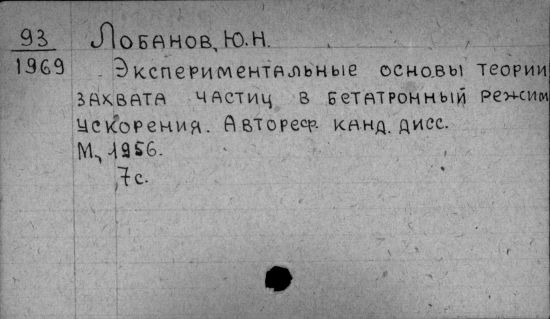 93 Лобанов, Ю.Н.
1969
Экспериментальные основы теории
захвата частиц в бетатронный режим
ускорения. Автореф. канд. дисс.
М., 1956.
7с.